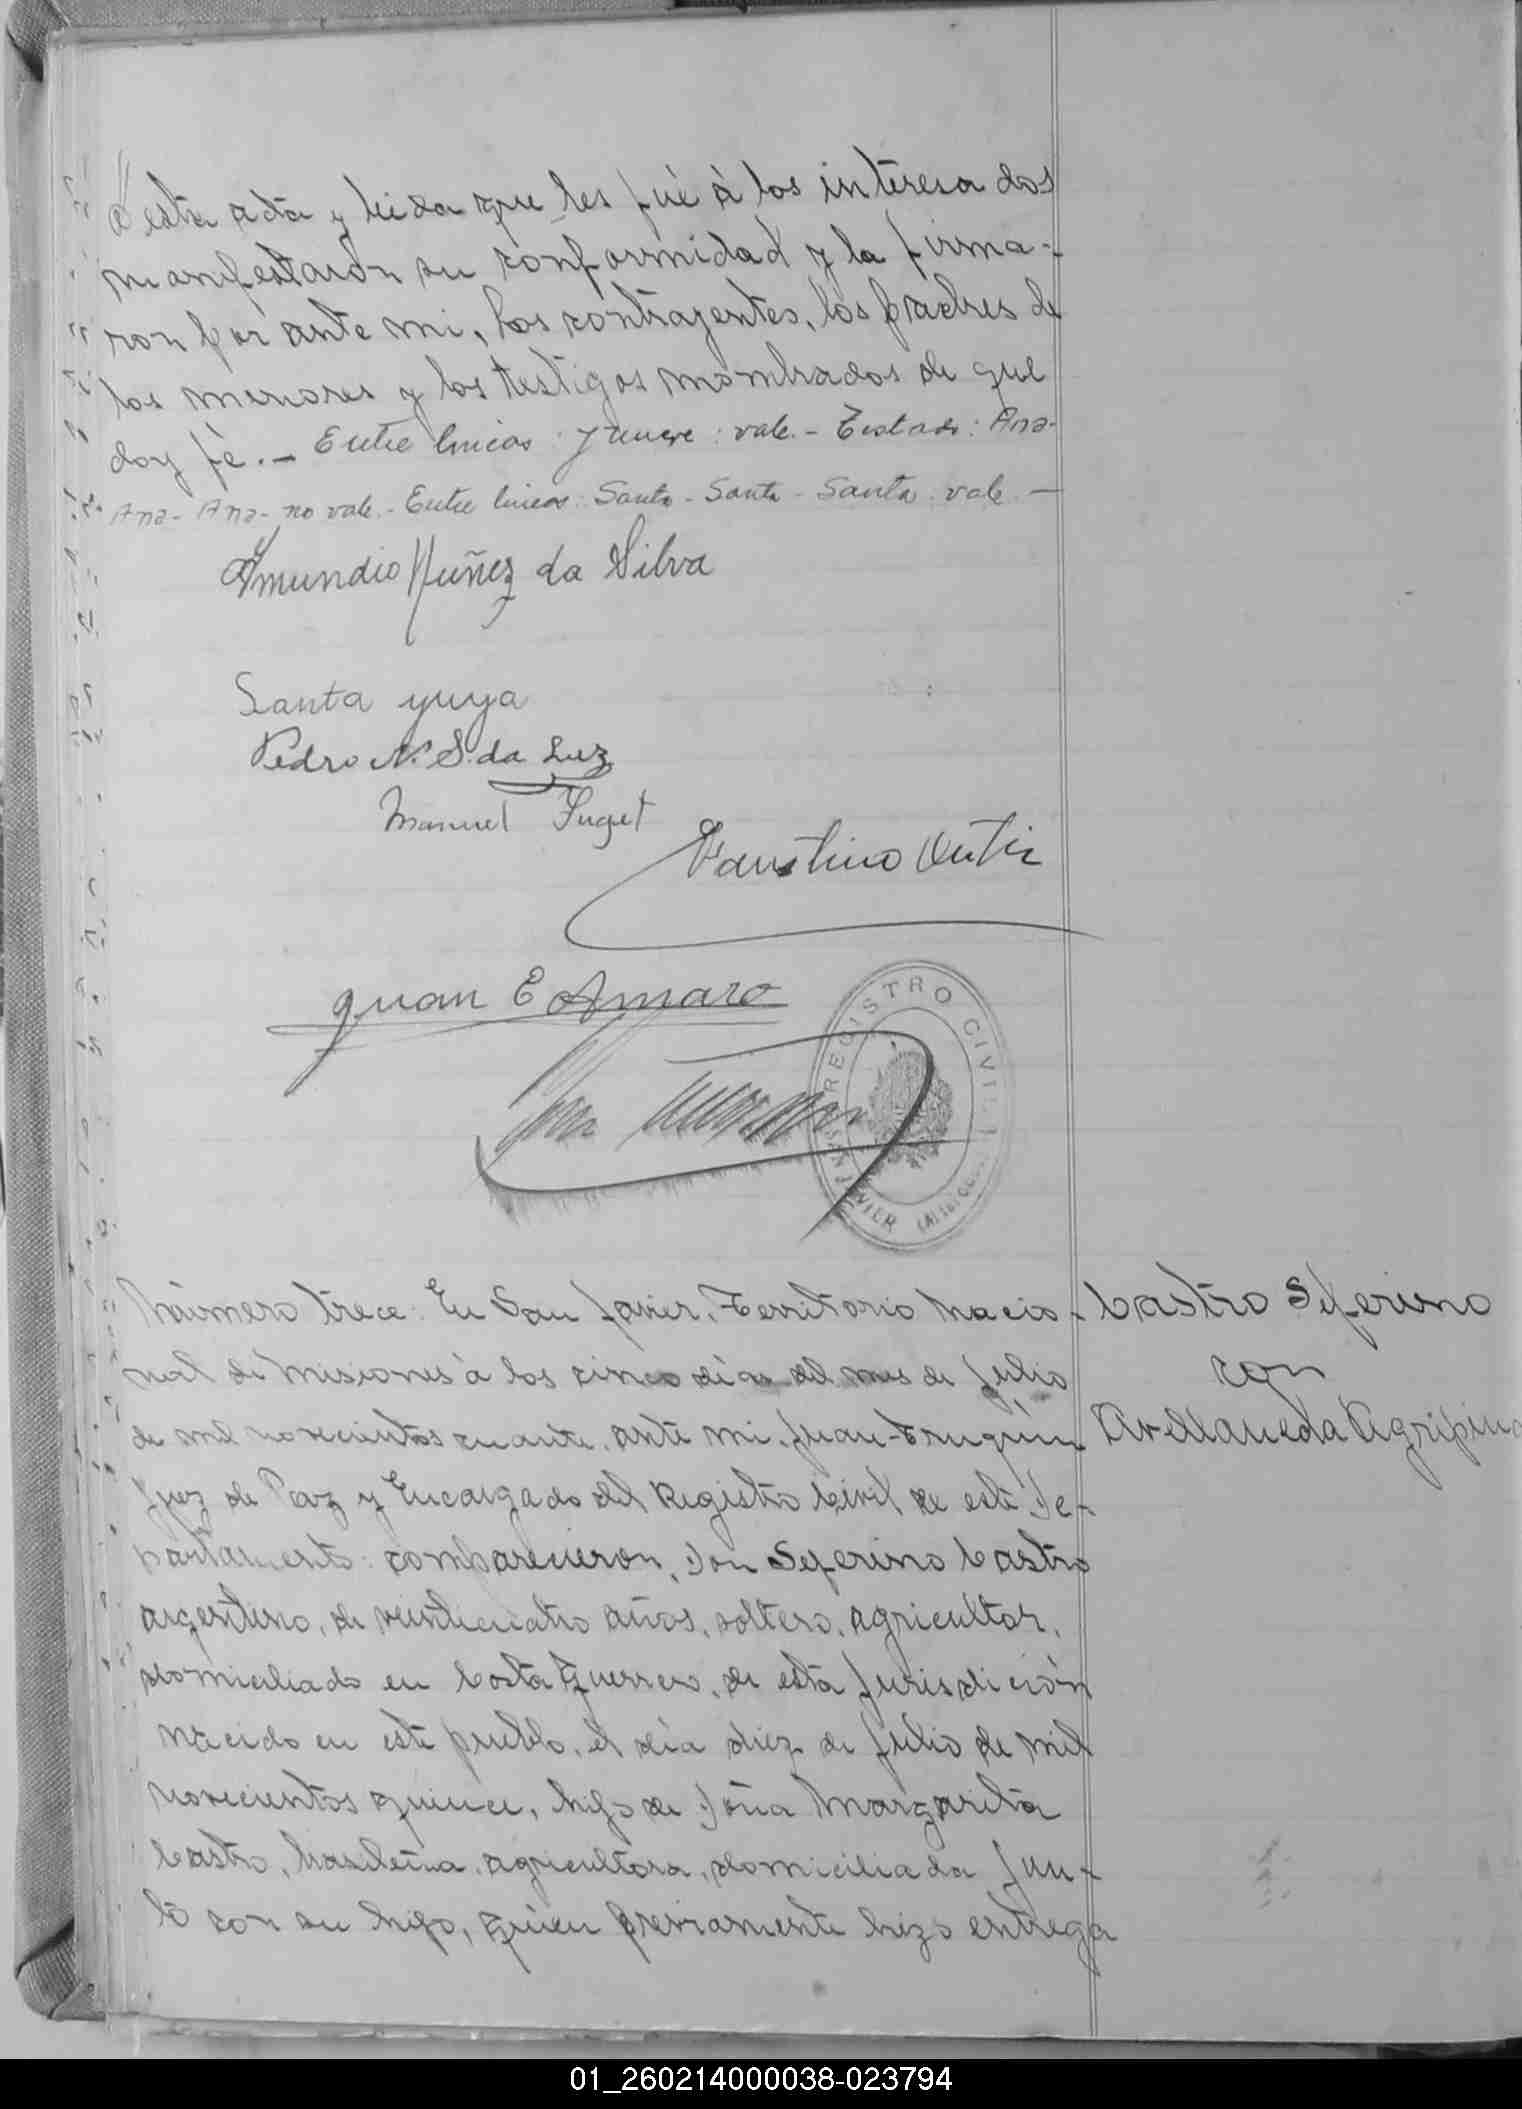 á esta acta y leida que les fué á los interesados
manifestaron su conformidad y la firma-
ron por ante mi, los contrayentes, los padres de
los menores y los testigos nombrados de que
doy fé.- Entre lineas: y nueve: vale.- Testado: Ana-
Ana- Ana- no vale.- Entre lineas: Santa- Santa- Santa: vale.-
Amundio Nuñez da Silva
Santa yuya
Pedro N. S. da Luz
Manuel
Faustino
Juan E Amaro
Juan
REGISTRO CIVIL
SAN JAVIER (MISIONES)
Número trece: En San Javier, Territorio Nacio-
nal de Misiones á los cinco días del mes de Julio
de mil novecientos cuarenta, ante mi, Juan
Juez de Paz y Encargado del Registro Civil de este De-
partamento: comparecieron, Don Seferino Castro
argentino, de veinticuatro años, soltero, agricultor,
domiciliado en Costa Guerrero, de esta Jurisdición
nacido en este pueblo, el día diez de Julio de mil
novecientos quince, hijo de Doña Margarita
Castro, brasileña, agricultora, domiciliada Jun-
to con su hijo, quien previamente hizo entrega
Castro Seferino
con
Avellaneda Agripina
01_260214000038-023794